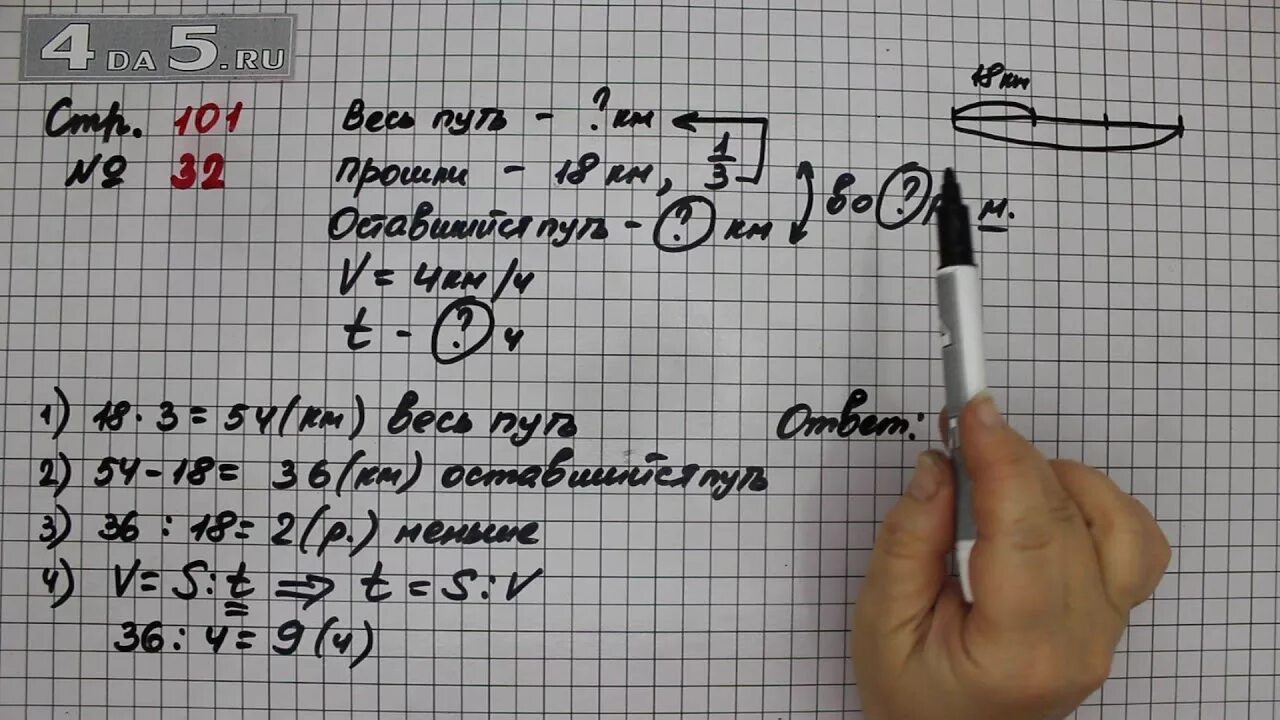 4DA5.RU
Стр. 101
№ 32
18км
Весь путь - ? км
прошли - 18 км, 1/3
Оставшийся путь - ? км
во ? м.
V = 4км/ч
t - ? ч
1) 18 · 3 = 54(км) весь путь
2) 54 - 18 = 36(км) оставшийся путь
3) 36 : 18 = 2(р.) меньше
4) V = S : t ⇒ t = S : V
36 : 4 = 9(ч)
Ответ: